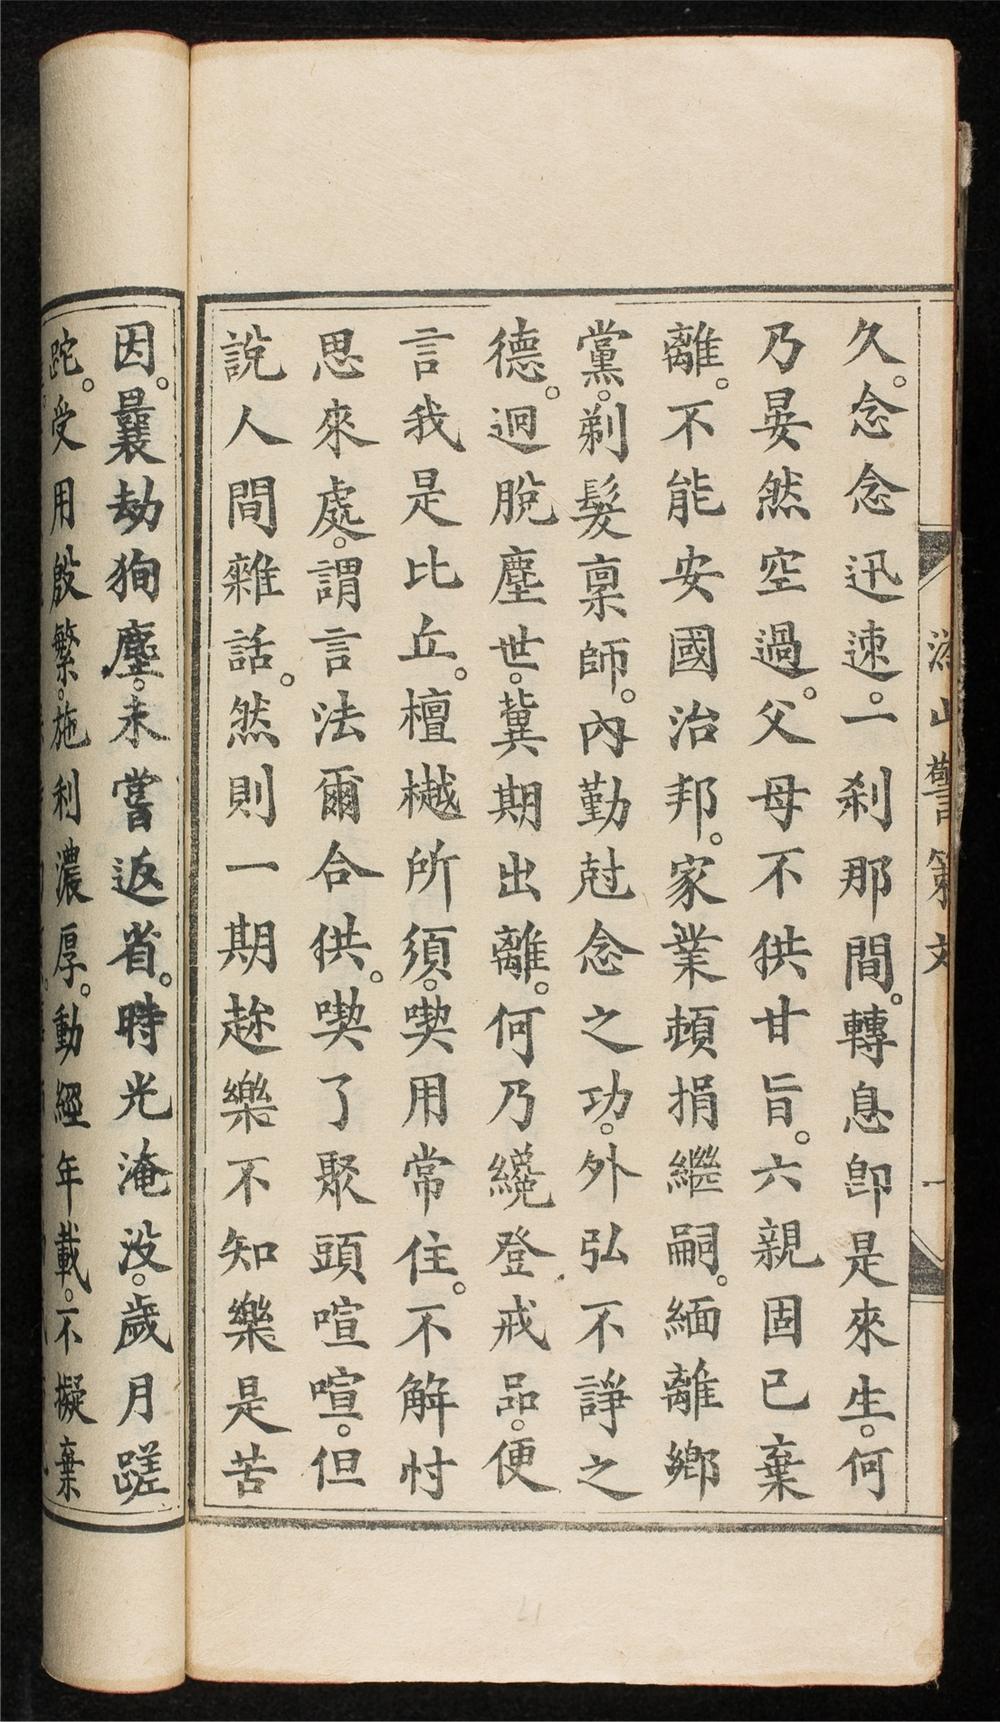 溈山警策文
一
久。念念迅速。一刹那間。轉息即是來生。何
乃晏然空過。父母不供甘旨。六親固已棄
離。不能安國治邦。家業頓捐繼嗣。緬離鄉
黨。剃髮稟師。內勤尅念之功。外弘不諍之
德。迥脫塵世。冀期出離。何乃纔登戒品。便
言我是比丘。檀樾所須。喫用常住。不解忖
思來處。謂言法爾合供。喫了聚頭喧喧。但
說人間雜話。然則一期趂樂。不知樂是苦
因。曩劫狥塵。未嘗返省。時光淹没。歲月蹉
跎。受用殷繁。施利濃厚。動經年載。不擬棄